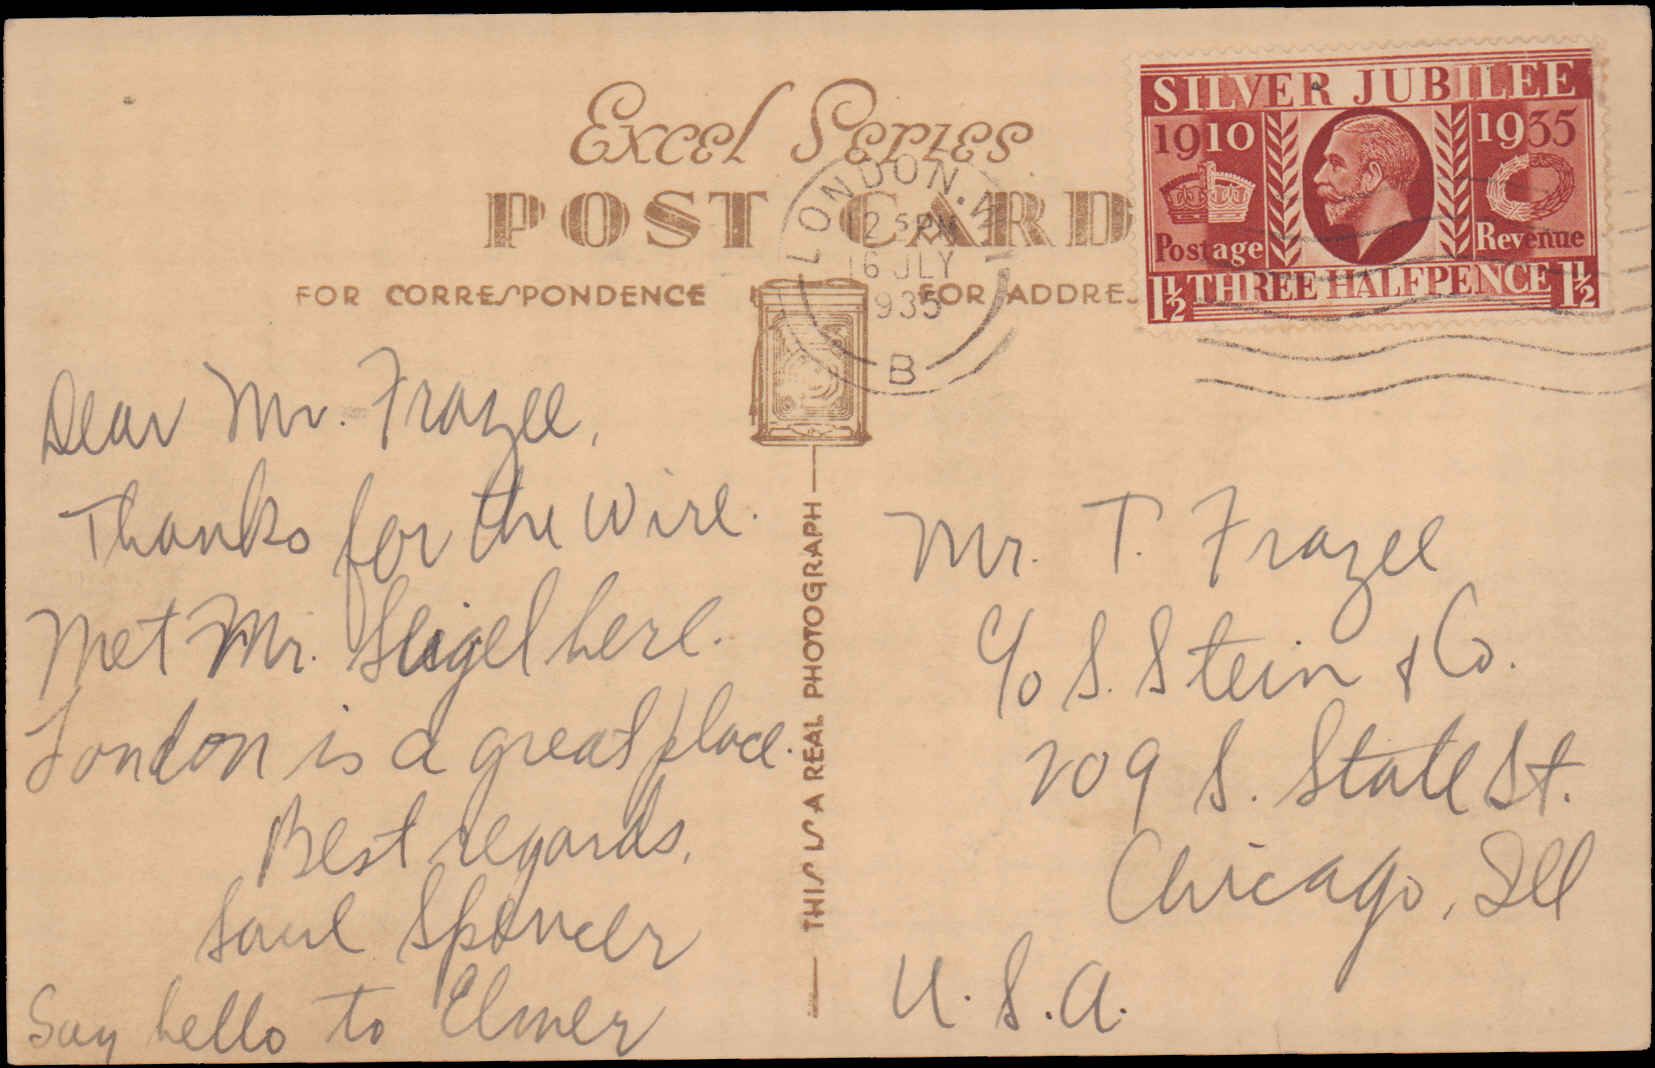 Excel Series
POST CARD
FOR CORRESPONDENCE
FOR ADDRES
SILVER JUBILEE
1910
1935
Postage
Revenue
1½ THREE HALFPENCE 1½
LONDON
2 5 PM
16 JLY
1935
B
Dear Mr. Frazee,
Thanks for the wire.
Met Mr. Seigel here.
London is a great place.
Best regards,
Saul Spencer
Say hello to Elmer
THIS IS A REAL PHOTOGRAPH
Mr. T. Frazee
c/o S. Stein & Co.
209 S. State St.
Chicago, Ill
U.S.A.